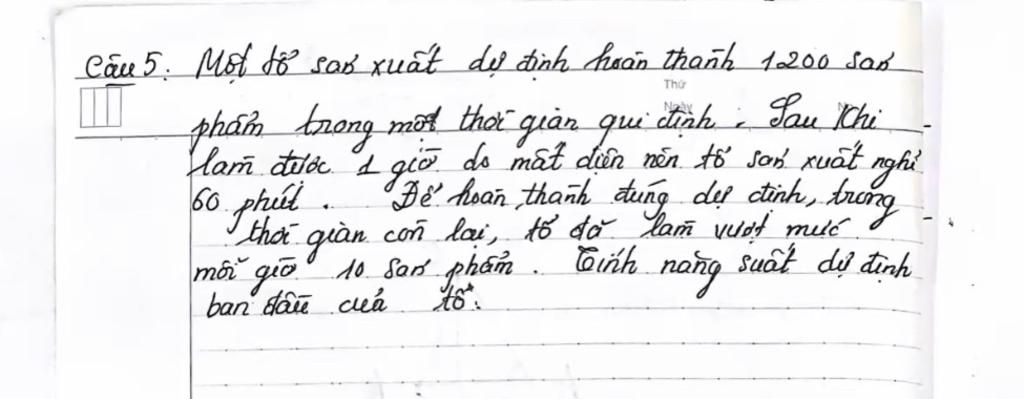 Câu 5: Một tổ sản xuất dự định hoàn thành 1200 sản
Thứ
Ngày
No
phẩm trong một thời gian qui định. Sau khi
làm được 1 giờ do mất điện nên tổ sản xuất nghỉ
60 phút. Để hoàn thành đúng dự định, trong
thời gian còn lại, tổ đã làm vượt mức
mỗi giờ 10 sản phẩm. Tính năng suất dự định
ban đầu của tổ.